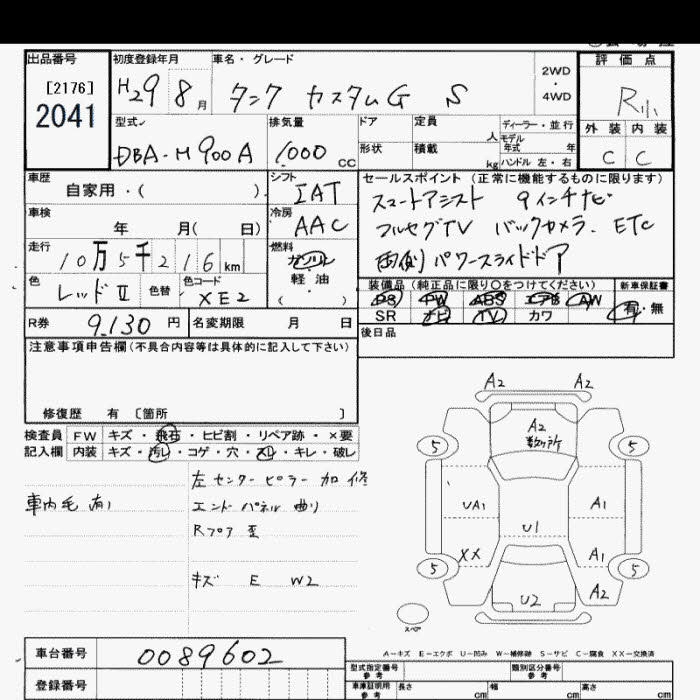 出品番号
[2176]
2041
初度登録年月
H29 8月
車名・グレード
タンク カスタムG S
2WD
・
4WD
評価点
R小
外装 内装
C C
型式
DBA-M900A
排気量
1000 CC
ドア
形状
定員 人
積載 kg
ディーラー・並行
モデル年式 年
ハンドル 左・右
車歴
自家用・( )
シフト
IAT
セールスポイント (正常に機能するものに限ります)
スマートアシスト 9インチナビ
フルセグTV バックカメラ. ETC
両側パワースライドドア
車検
年 月( 日)
冷房
AAC
走行
10万5千216km
燃料
ガソリン
軽油
( )
色
レッドII
色替
色コード
XE2
装備品 (純正品に限り○をつけてください)
新車保証書
PS PW ABS エアB AW
SR ナビ TV カワ
有・無
R券 9,130円
名変期限 月 日
後日品
注意事項申告欄(不具合内容等は具体的に記入して下さい)
修復歴 有 〔箇所 〕
検査員 FW キズ・飛石・ヒビ割・リペア跡・×要
記入欄 内装 キズ・汚レ・コゲ・穴・スレ・キレ・破レ
車内毛有り
左センターピラー加修
エンドパネル曲り
Rフロア歪
キズ E W2
A2 A2
A2
数ヶ所
5 5
UA1 A1
U1
XX A1
5 5
A2
U2
スペア
A-キズ E-エクボ U-凹み W-補修跡 S-サビ C-腐食 XX-交換済
車台番号 0089602
登録番号
型式指定番号
参考
類別区分番号
参考
車庫証明用
参考
長さ cm
幅 cm
高さ cm